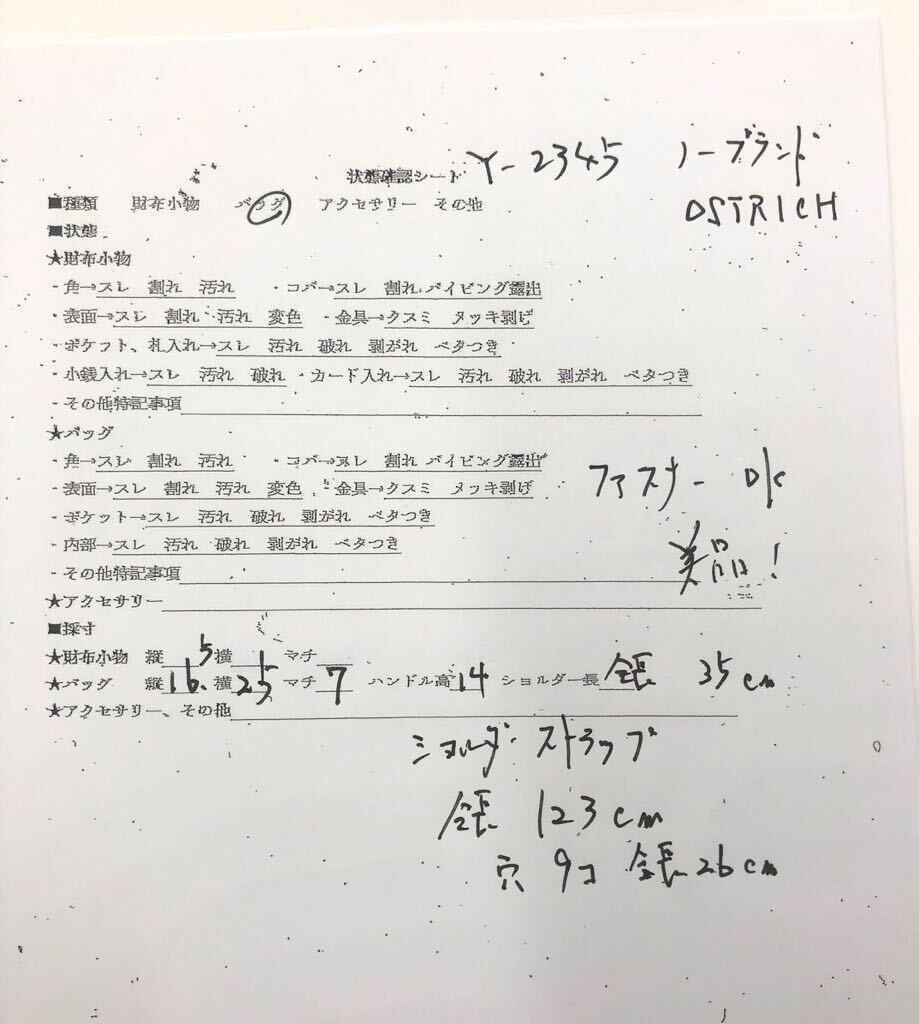 Y-2345 ノーブランド
状態確認シート
OSTRICH
■種類 財布小物 バッグ アクセサリー その他
■状態
★財布小物
・角→スレ 割れ 汚れ ・コバ→スレ 割れ パイピング露出
・表面→スレ 割れ 汚れ 変色 ・金具→クスミ メッキ剥げ
・ポケット、札入れ→スレ 汚れ 破れ 剥がれ ベタつき
・小銭入れ→スレ 汚れ 破れ ・カード入れ→スレ 汚れ 破れ 剥がれ ベタつき
・その他特記事項
★バッグ
・角→スレ 割れ 汚れ ・コバ→スレ 割れ パイピング露出
・表面→スレ 割れ 汚れ 変色 ・金具→クスミ メッキ剥げ
ファスナー OK
・ポケット→スレ 汚れ 破れ 剥がれ ベタつき
・内部→スレ 汚れ 破れ 剥がれ ベタつき
美品!
・その他特記事項
★アクセサリー
■採寸
★財布小物 縦 横 マチ
★バッグ 縦 16.5 横 25 マチ 7 ハンドル高 14 ショルダー長 全長 35cm
★アクセサリー、その他
ショルダーストラップ
全長 123cm
穴 9コ 全長26cm